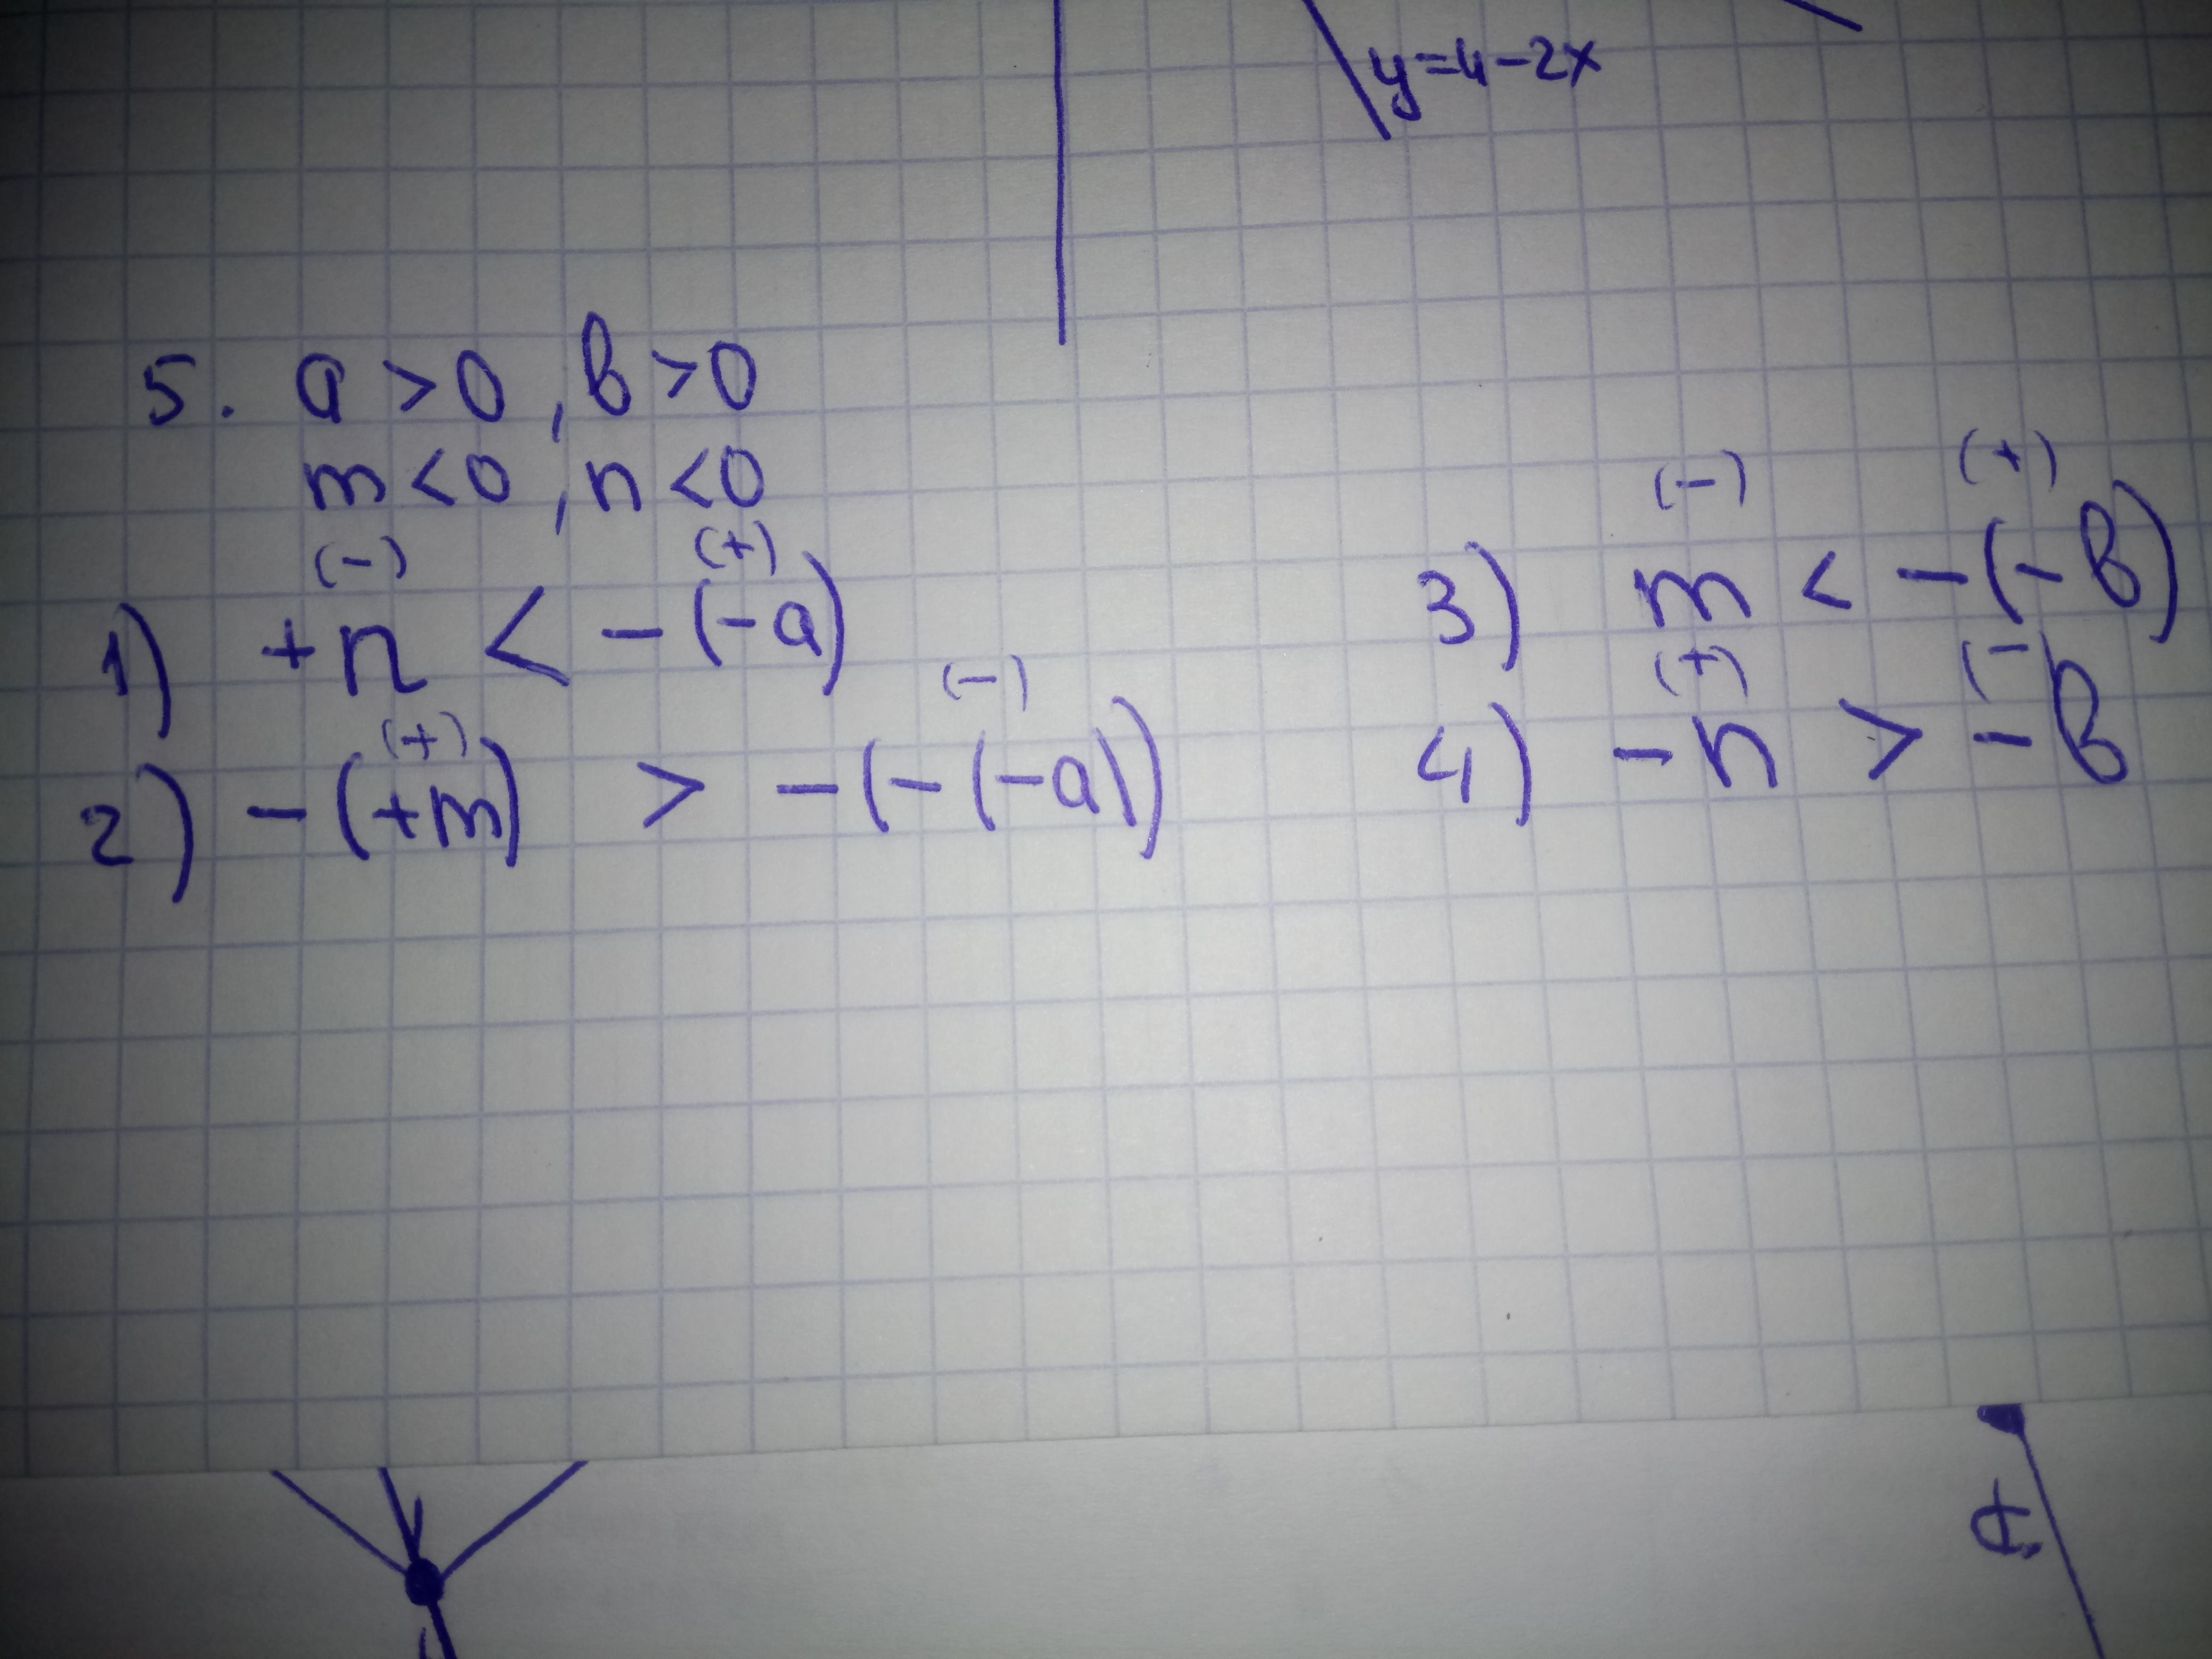 y=4-2x
5. a >0, b >0
m <0, n <0
(-) (+)
1) +n < -(-a)
(+) (-)
2) -(+m) > -(-(-a))
(-) (+)
3) m < -(-b)
(+) (-)
4) -n > -b